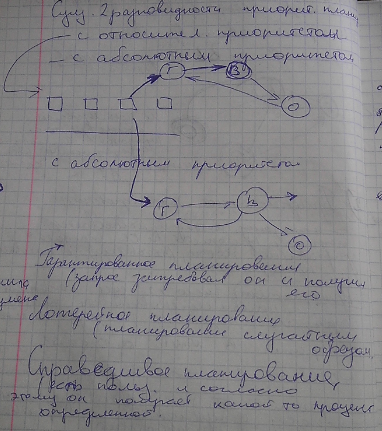 Сущ. 2 разновидности приорит. планир.
– с относител. приоритетом
– с абсолютным приоритетом
Г
В
О
с абсолютным приоритетом
Г
В
О
Гарантированное планирование
(запрос
он и получил
его
Лотерейное планирование
(планирование случайным
образом.
Справедливое планирование,
(есть польз. и согласно
этому он получает какой то процент
определенной.